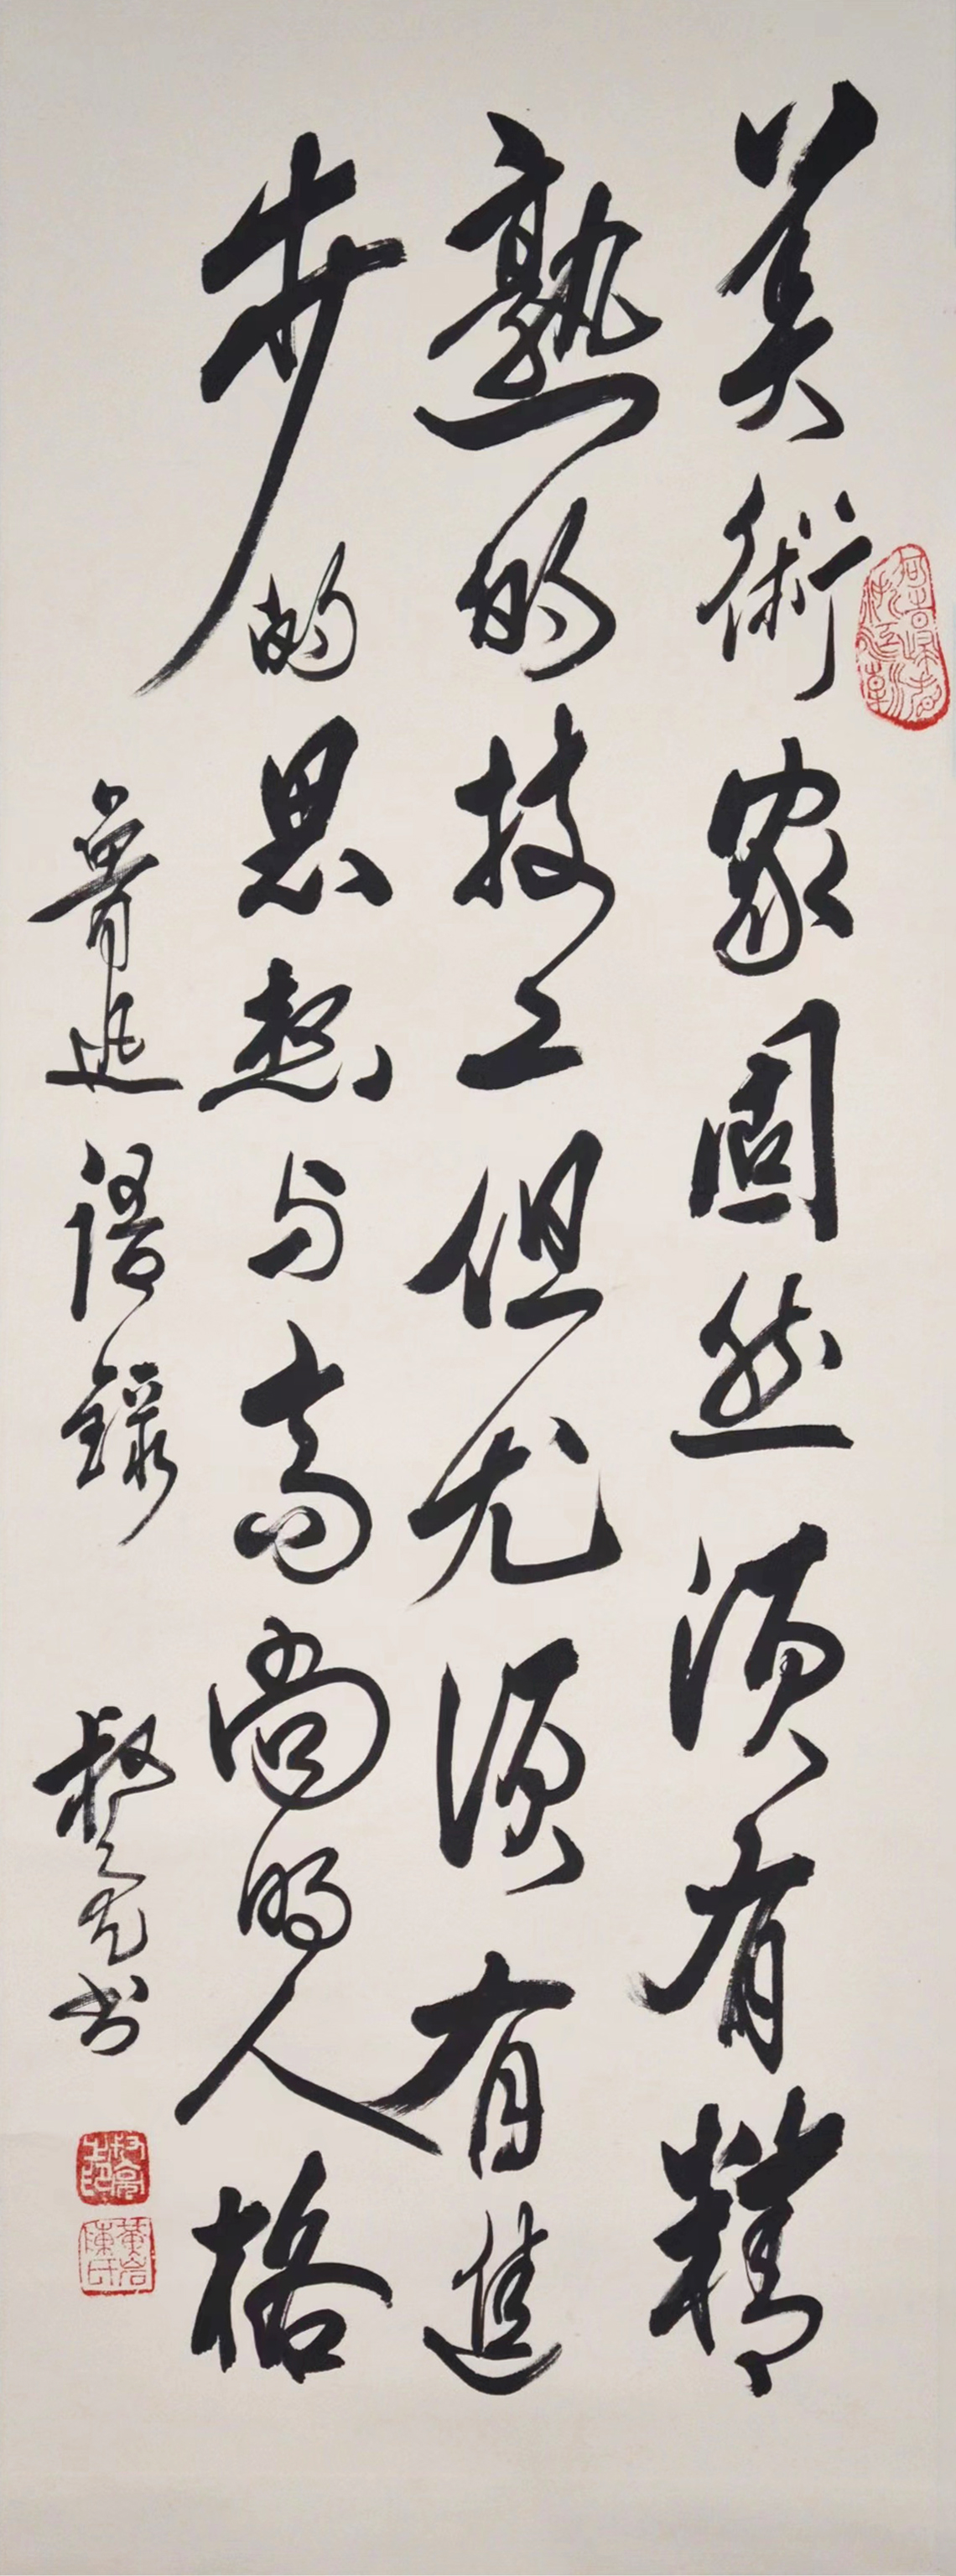 美術家固然須有精
熟的技工但尤須有進
步的思想与高尚的人格
魯迅語錄 叔亮书
黄岩陳氏